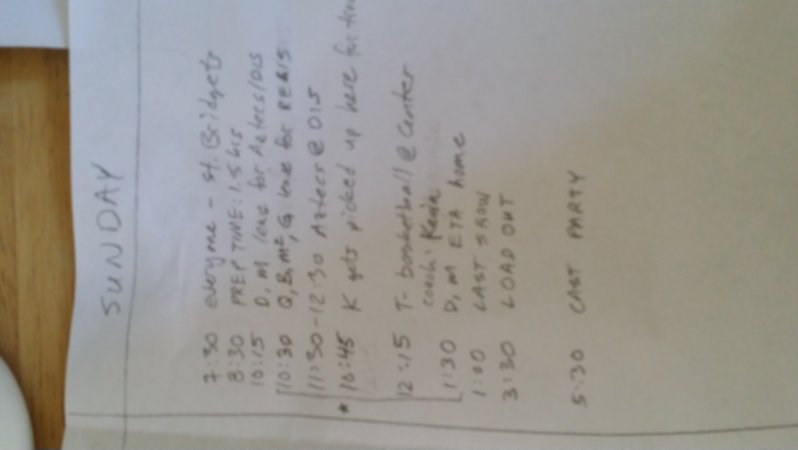 SUNDAY
7:30 everyone - St. Bridgets
8:30 PREP TIME: 1.5 hrs
10:15 D, M leave for Aztecs/DIS
10:30 Q, B, M², G leave for
11:30-12:30 Aztecs @ DIS
* 10:45 K gets picked up here for
12:15 T- basketball @ Center
coach: Kevin
1:30 D, M ETA home
1:00 LAST SHOW
3:30 LOAD OUT
5:30 CAST PARTY